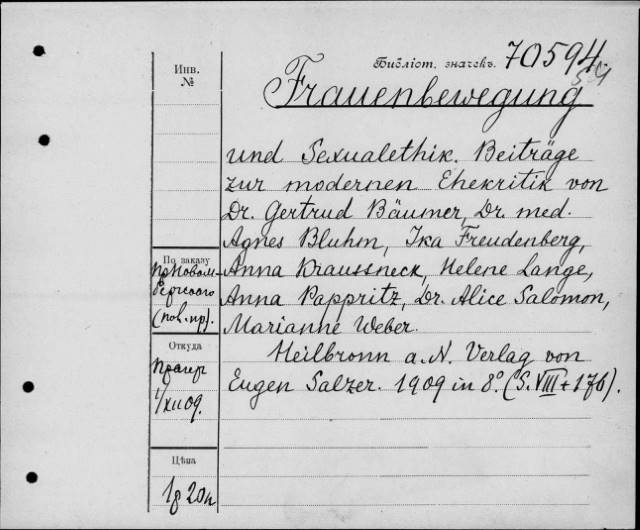 Инв.
№
Библіот. значекъ. 70594
Frauenbewegung
und Sexualethik. Beiträge
zur modernen Ehekritik von
Dr. Gertrud Bäumer, Dr. med.
Agnes Bluhm, Ika Freudenberg,
Anna Kraussneck, Helene Lange,
Anna Pappritz, Dr. Alice Salomon,
Marianne Weber.
Heilbronn a.N. Verlag von
Eugen Salzer. 1909 in 8°. (S. VIII + 176).
По заказу
(пов. пр).
Откуда
1/XII 09.
Цѣна
1р 20п